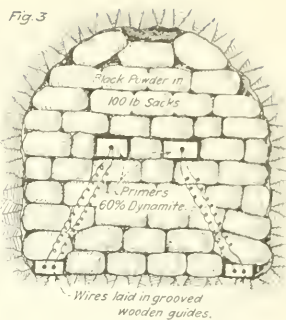 Fig. 3
Black Powder in
100 lb Sacks
Primers
60% Dynamite
Wires laid in grooved
wooden guides.